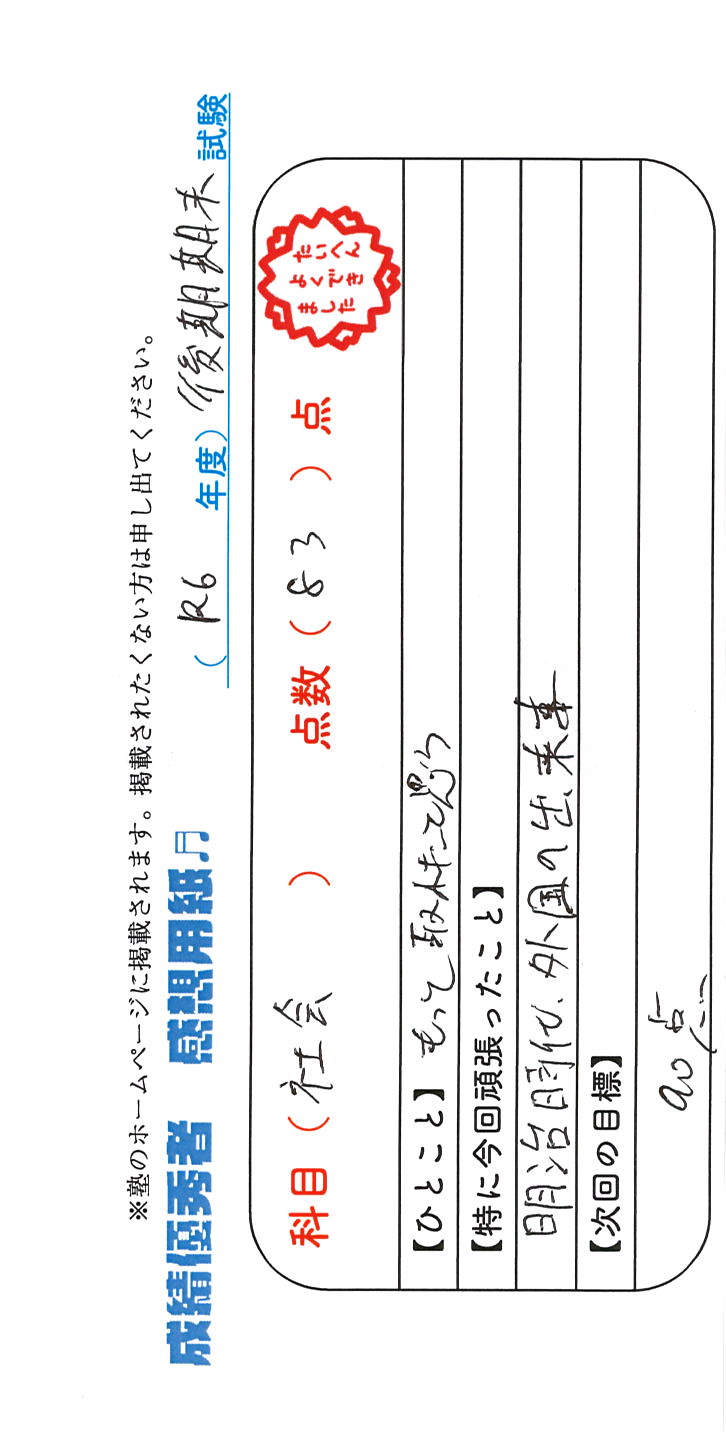 ※塾のホームページに掲載されます。掲載されたくない方は申し出てください。
成績優秀者 感想用紙♬ (R6 年度)後期期末試験
科目(社会)点数(83)点
たいへん
よくでき
ました
【ひとこと】もっと取れたと思う
【特に今回頑張ったこと】
明治時代、外国の出来事
【次回の目標】
90点